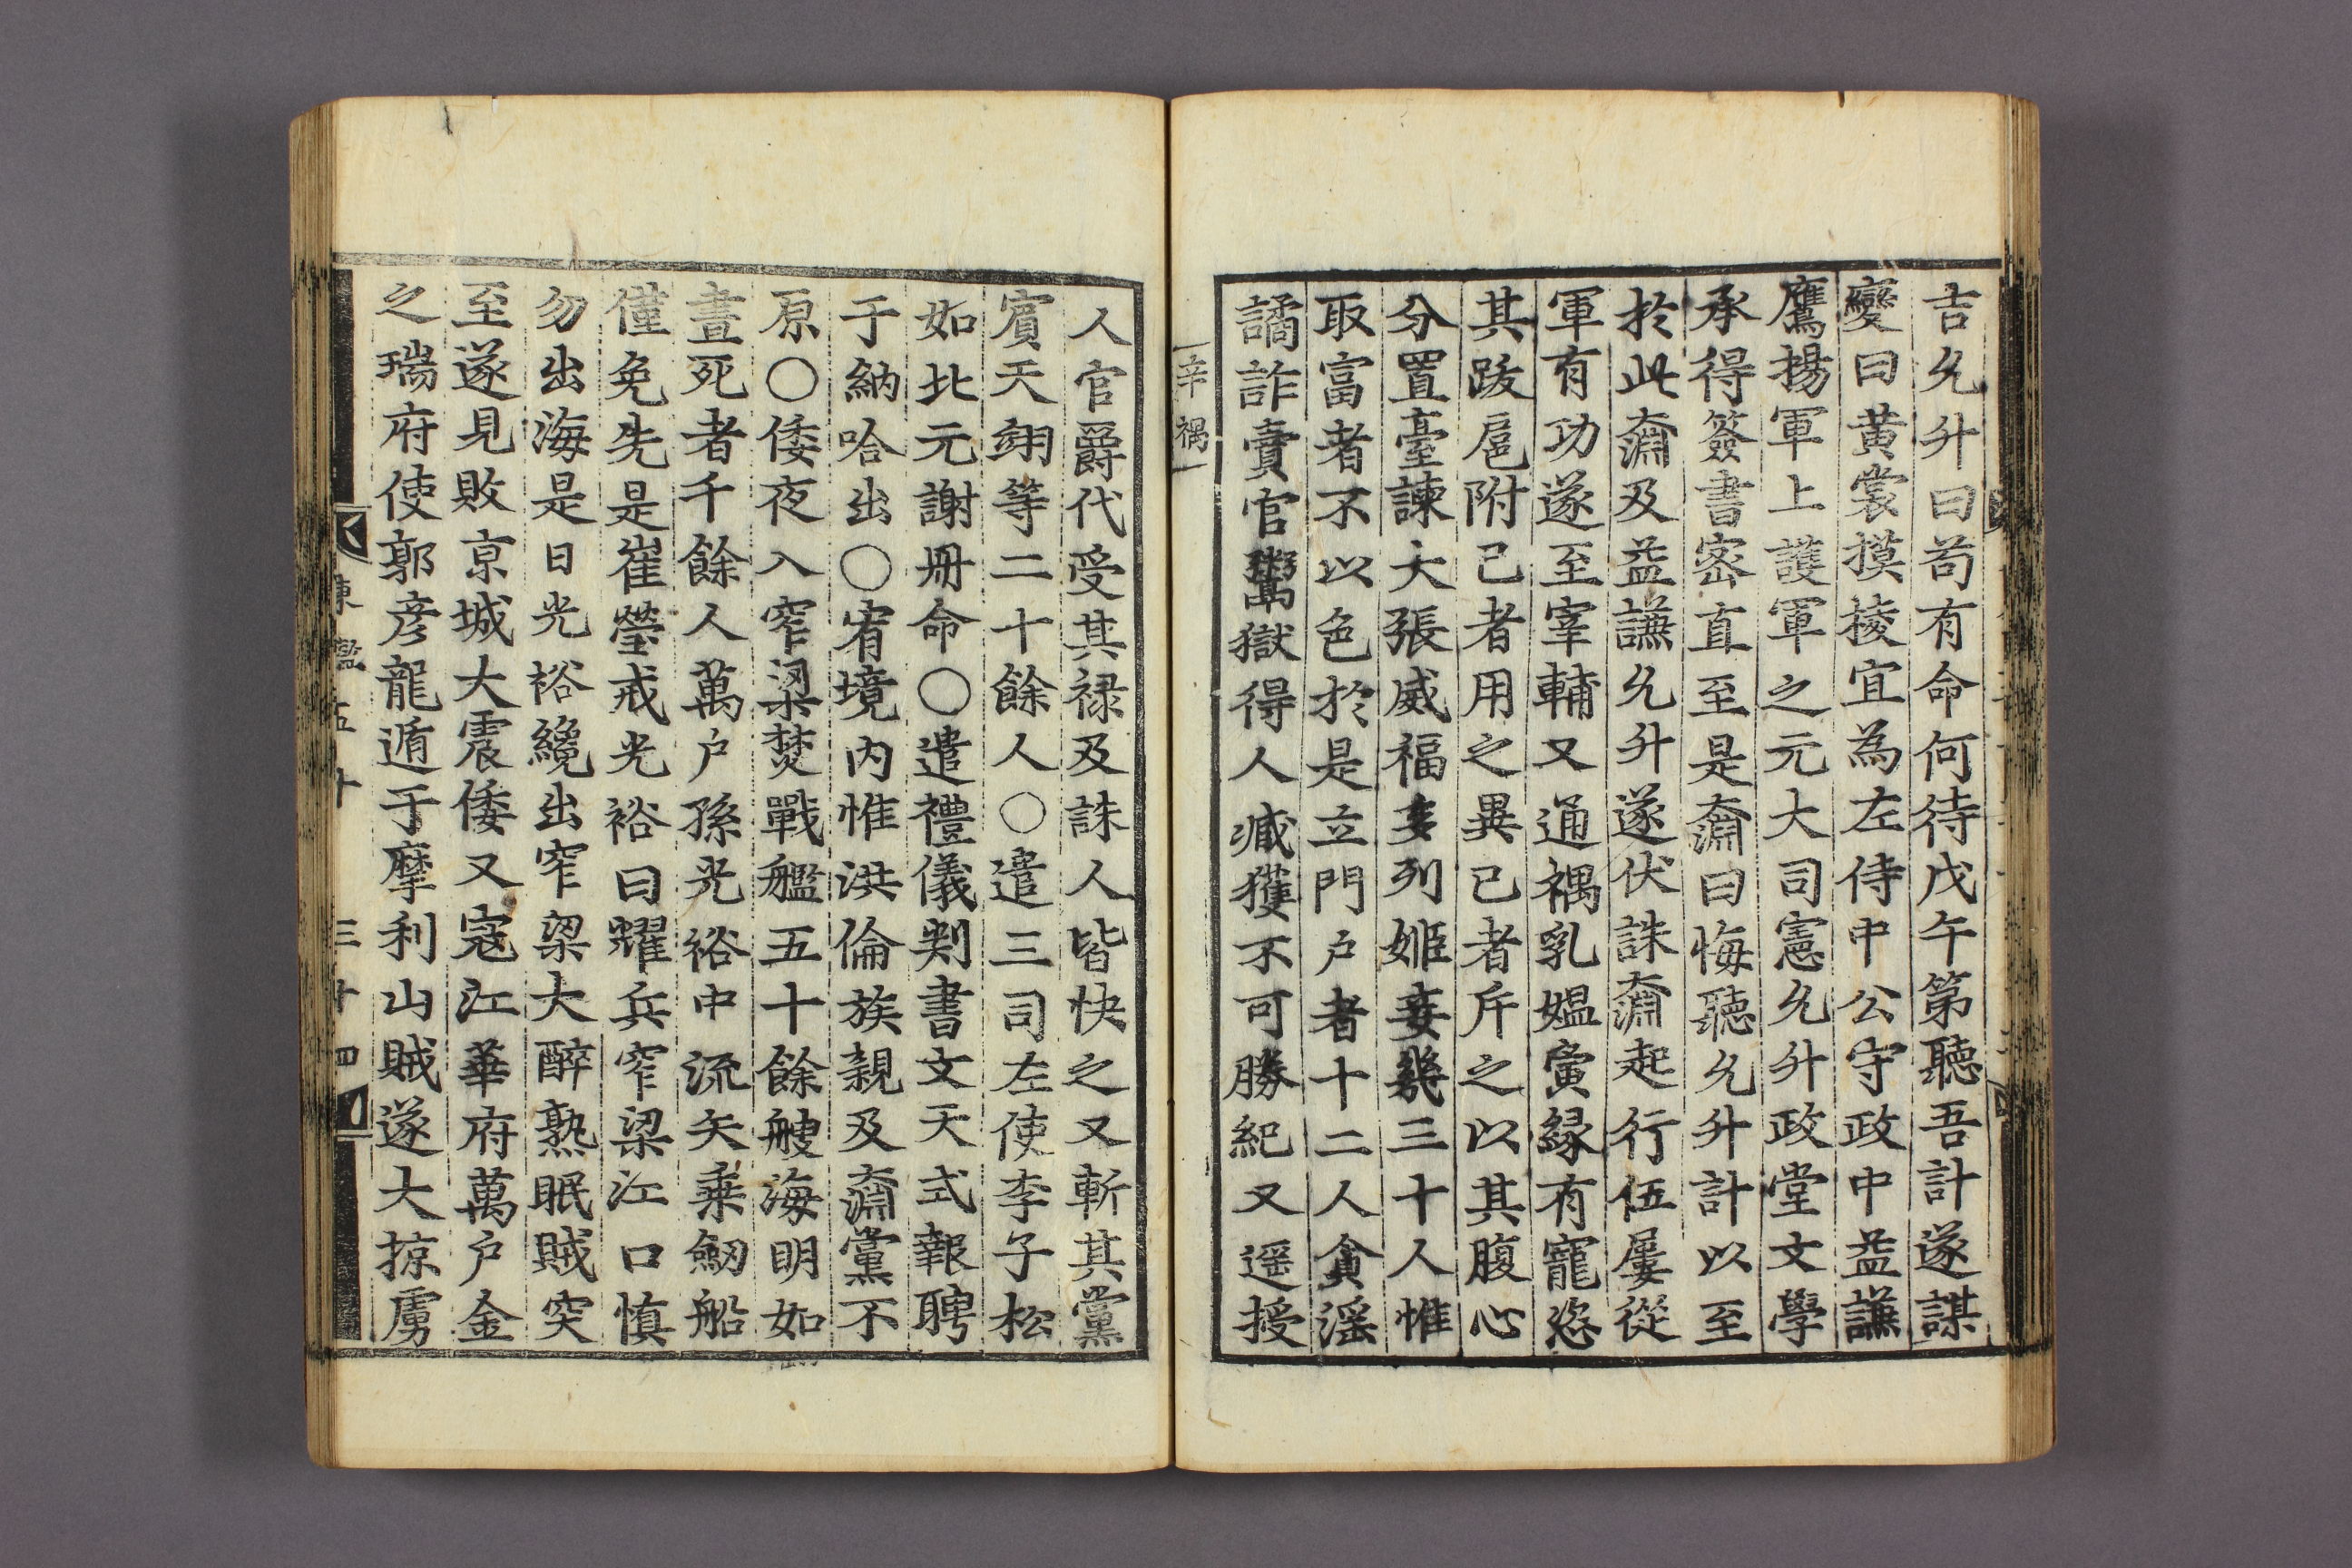 吉允升曰苟有命何待戊午第聽吾計遂謀
變曰黄裳摸稜宜為左侍中公守政中益謙
鷹揚軍上護軍之元大司憲允升政堂文學
承得簽書密直至是奫曰悔聽允升計以至
於此奫及益謙允升遂伏誅奫起行伍屢從
軍有功遂至宰輔又通禑乳媼寅縁有寵恣
其跋扈附己者用之異己者斥之以其腹心
分置臺諫大張威福多列姬妾幾三十人惟
取富者不以色於是立門户者十二人貪滛
譎詐賣官鬻獄得人臧獲不可勝紀又遥授
辛禑
人官爵代受其禄及誅人皆快之又斬其黨
賔天翊等二十餘人○遣三司左使李子松
如北元謝冊命○遣禮儀判書文天式報聘
于納哈出○宥境内惟洪倫族親及奫黨不
原○倭夜入窄梁焚戰艦五十餘艘海明如
晝死者千餘人萬户孫光裕中流矢乗劒船
僅免先是崔瑩戒光裕曰耀兵窄梁江口慎
勿出海是日光裕纔出窄梁大醉熟眠賊突
至遂見敗京城大震倭又寇江華府萬户金
之瑞府使郭彦龍遁于摩利山賊遂大掠虜
東鑑五十 三十四